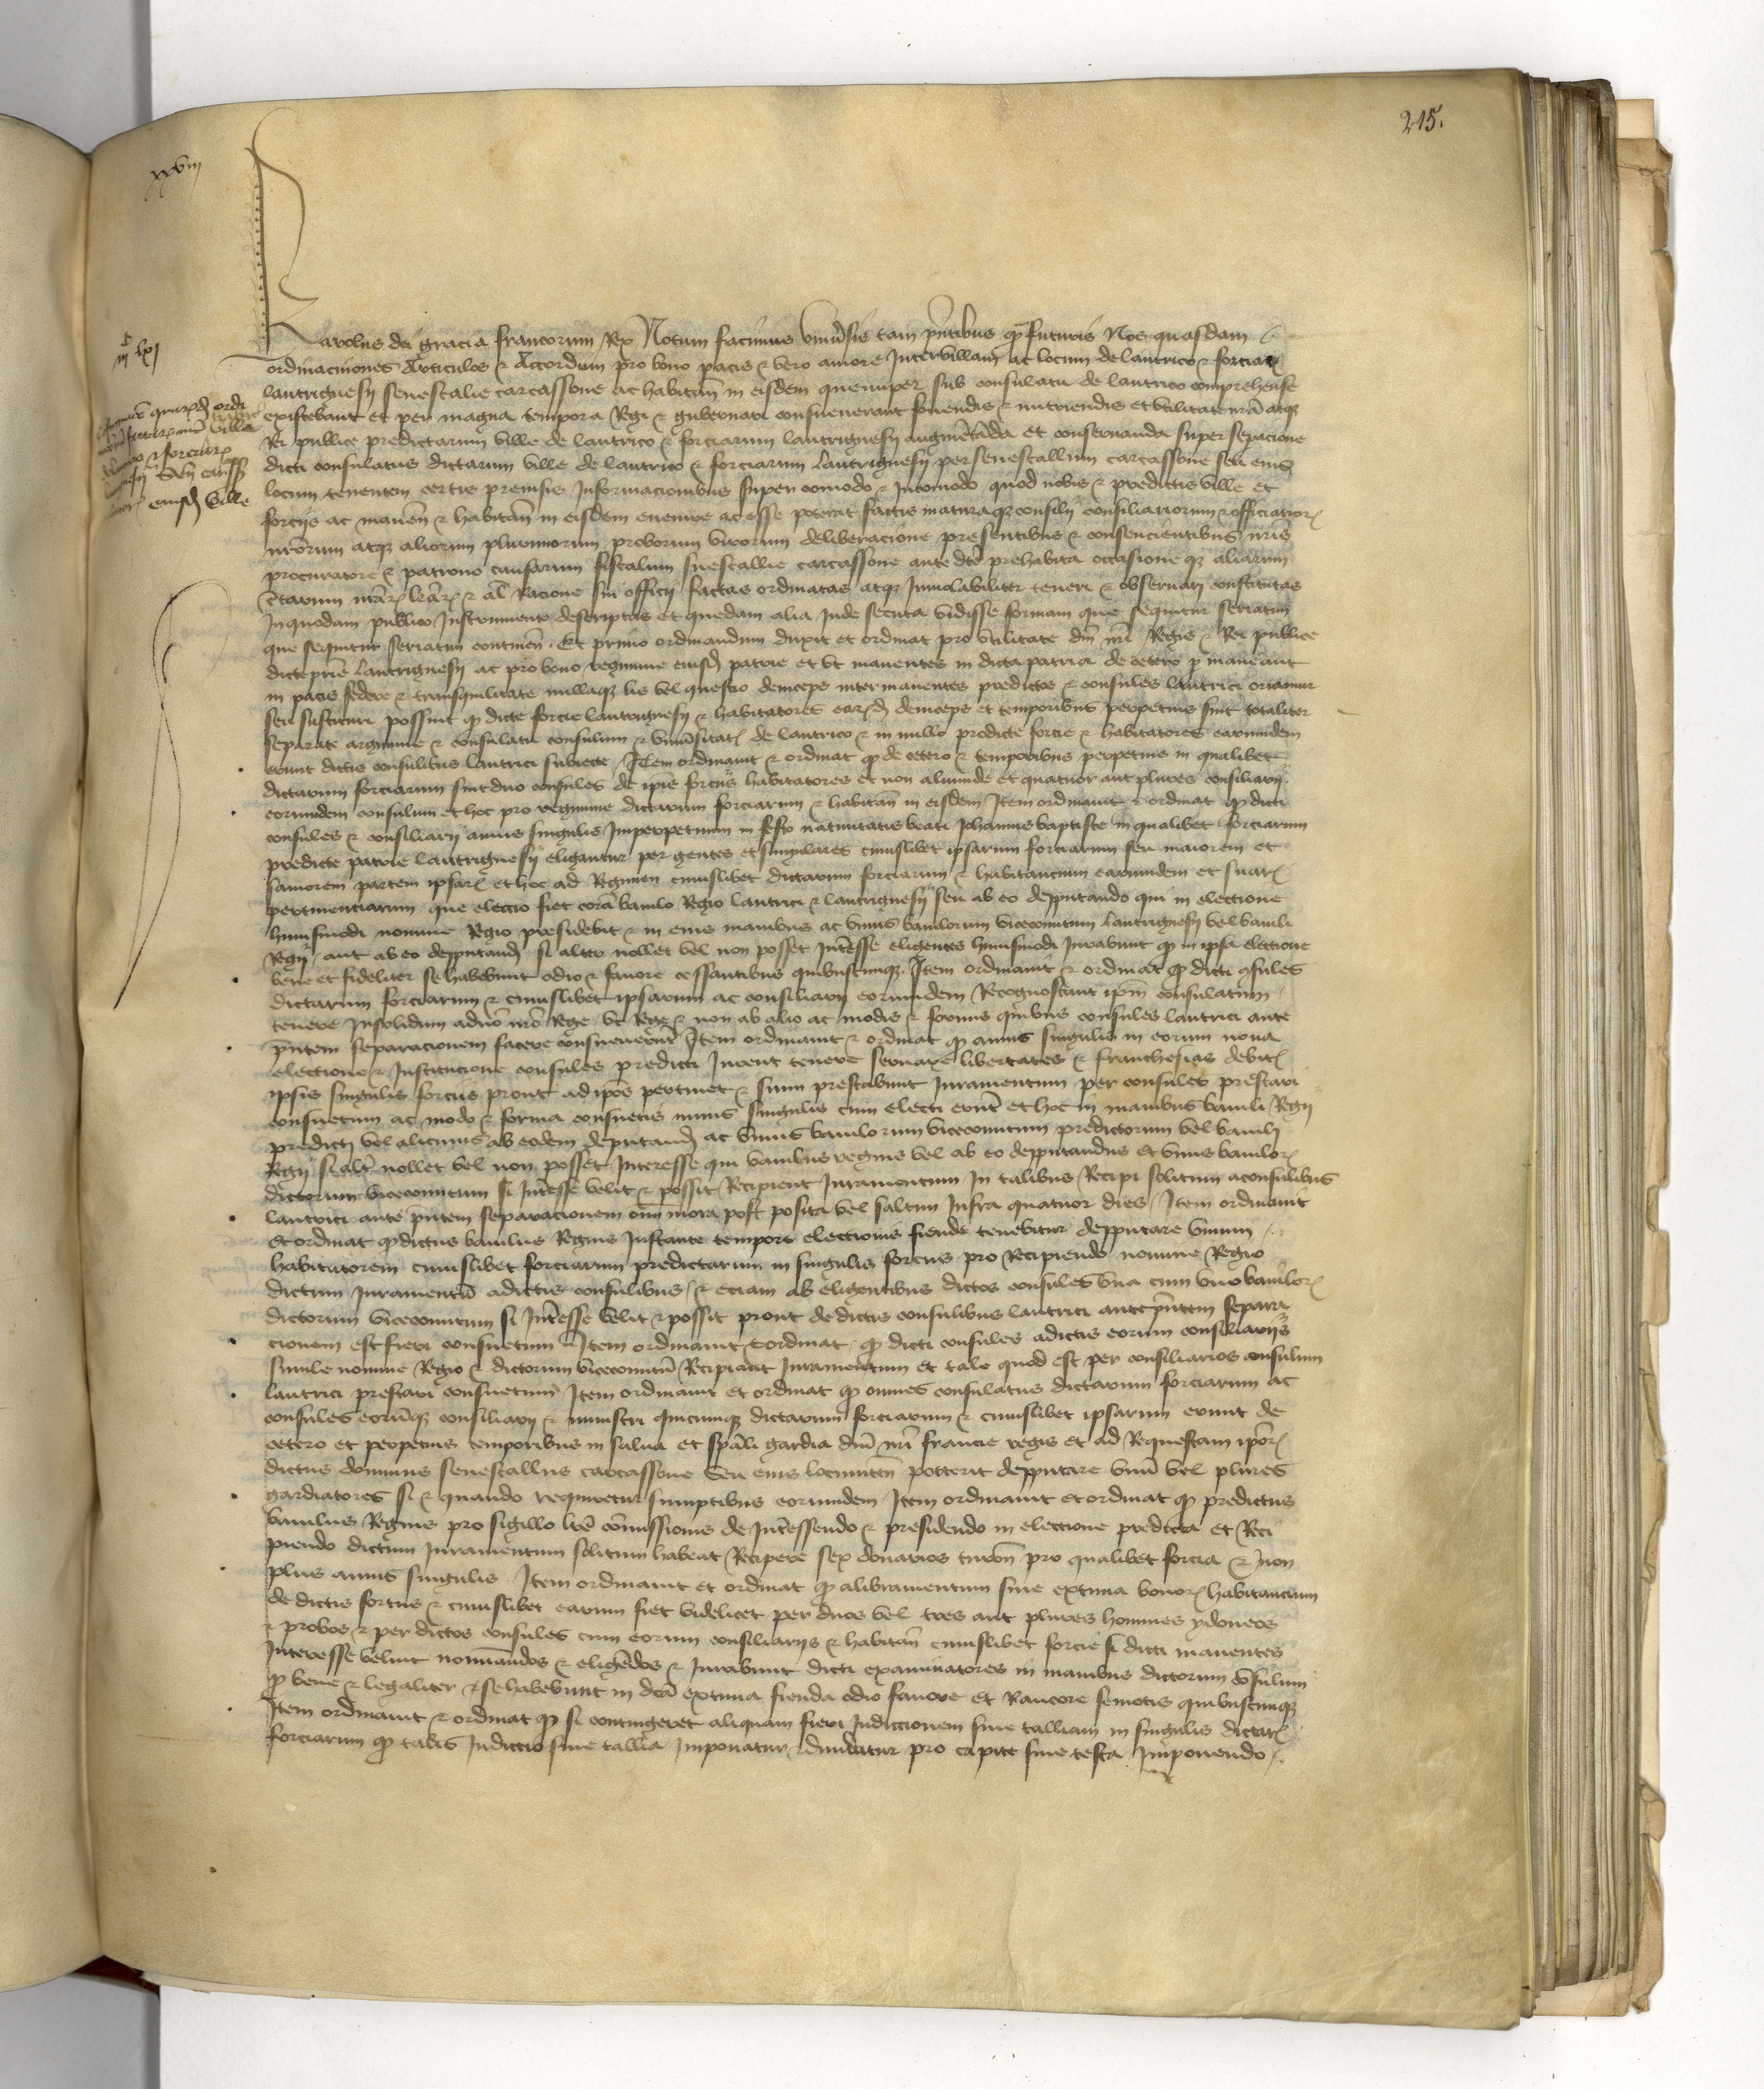 215.
xxviii
iiic lxi
Karolus dei gracia francorum Rex Notum facimus universis tam pntibus qm futuris Nos quasdam
ordinaciones Articulos & Accordum pro bono pacis & vero amore Inter villam ac locum de lautrico & forciar
lautriguesij senescalie carcassone ac habitan in eisdem que nuper sub consulatu de lautrico comprehense
existebant et per magna tempora Regi & gubernari consueverant fovendis & nutriendis et utilitate nra atqz
Rei publice predictarum ville de lautrico & forciarum lautriguesij augmentanda et conservanda super sepacione
dicti consulatus dictarum ville de lautrico & forciarum lautriguesij per senescallum carcassone seu eius
locum tenentem certis premissis Informacionibus super comodo & Incomodo quod nobis & predictis ville et
forcijs ac manen & habitan in eisdem evenire ac esse poterat factis maturaqz consilij consiliariorum & officiarior
nrorum atqz aliorum plurimorum proborum virorum deliberacione presentibus & consencientibus nris
procuratore & patrono causarum fiscalium snescallie carcassone ante dce prehabita occasione qz aliarum
ctarum nrar lrar & al racione sui officij factas ordinatas atqz Inviolabiliter teneri & observari constitutas
In quodam publico Instrumento descriptas et quedam alia Inde secuta vidisse formam que sequitur seriatim
que sequitur seriatim continen. Et primo ordinandum duxit et ordinat pro utilitate dni nri Regis & Rei publice
dicte prie lautriguesij ac pro bono regimine eiusd patrie et ut manentes in dicta patria de cetero pmaneant
in pacis federe & transquilitate nullaqz lis vel questio deinceps inter manentes predictos & consules lautrici oriantur
seu suscitari possint q dicte forcie lautriguesij & habitatores eard deinceps et temporibus perpetuis sint totaliter
separate a regimine & consulatu consulum & universitat de lautrico & in nullo predicte forcie & habitatores earumdem
erunt dictis consulibus lautrici subiecte. Item ordinavit & ordinat q de cetero & temporibus perpetuis in qualibet
dictarum forciarum sint duo consules de ipsis forcijs habitatores et non aliunde et quatuor aut plures consiliarij
eorumdem consulum et hoc pro regimine dictarum forciarum & habitan in eisdem Item ordinavit & ordinat q dicti
consules & consiliarij annis singulis Imperpetuum in festo nativitatis beati Johannis baptiste in qualibet forciarum
predicte patrie lautriguesij eligantur per gentes et singulares cuiuslibet ipsarum forciarum seu maiorem et
saniorem partem ipsar et hoc ad Regimen cuiuslibet dictarum forciarum & habitancium earumdem et suar
pertinenciarum que electio fiet cora baiulo Regio lautrici & lautriguesij seu ab eo depputando qui in electione
huiusmodi nomine Regio presidebit & in eius manibus ac unius baiulorum vicecomitum lautriguesij vel baiuli
Regij aut ab eo depputand si alter nollet vel non posset Interesse eligentes huiusmodi Iurabunt q in ipsa electione
bene et fideliter se habebunt odio & favore cessantibus quibuscunqz. Item ordinavit & ordinat q dicti csules
dictarum forciarum & cuiuslibet ipsarum ac consiliarij eorumdem Recognoscant ipm consulatum
tenere Insolidum a dno nro Rege ut Rege & non ab alio ac modis & formis quibus consules lautrici ante
pntem separacionem facere consueverunt Item ordinavit & ordinat q annis singulis in eorum nova
electione & Institucione consules predicti Iurent tenere servare libertates & franchesias debit
ipsis singulis forcijs prout ad ipos pertinet & suum prestabunt Iuramentum per consules prestari
consuetum ac modo & forma consuetis annis singulis cum electi erunt et hoc in manibus baiuli Regij
predicti vel alicuius ab eodem deputand ac unius baiulorum vicecomitum predictorum vel baiuli
Regij si alt nollet vel non posset Interesse qui baiulus regius vel ab eo depputandus et unus baiulor
dictorum vicecomitum si Interesse velit & possit Recipient Iuramentum In talibus Recipi solitum a consulibus
lautrici ante pntem separacionem omi mora post posita vel saltim Infra quatuor dies. Item ordinavit
Et ordinat q dictus baiulus Regius Instante tempore electionis fiende tenebitur depputare unum
habitatorem cuiuslibet forciarum predictarum in singulis forcijs pro Recipiendo nomine Regio
dictum Iuramentu a dictis consulibus & eciam ab eligentibus dictos consules una cum uno baiulor
dictorum vicecomitum si Interesse velit & possit prout de dictis consulibus lautrici ante pntem separa
cionem est fieri consuetum Item ordinavit & ordinat q dicti consules a dictis eorum consiliarijs
simile nomine Regio & dictorum vicecomitu Recipiant Iuramentum et tale quod est per consiliarios consulum
lautrici prestari consuetum Item ordinavit et ordinat q omnes consulatus dictarum forciarum ac
consules eorumqz consiliarij & ministri quicunqz dictarum forciarum & cuiuslibet ipsarum erunt de
cetero et perpetuis temporibus in salva et spali gardia dni nri francie regis et ad Requestam ipor
dictus dominus senescallus carcassone seu eius locumten potterit depputare unu vel plures
gardiatores si & quando requiretur sumptibus eorumdem Item ordinavit et ordinat q predictus
baiulus Regius pro sigillo lre comissionis de Interessendo & presidendo in electione predicta et Reci
piendo dictum Iuramentum solitum habeat Recipere sex denarios turon pro qualibet forcia & non
plus annis singulis. Item ordinavit et ordinat q alibramentum sive extima bonor habitancium
de dictis forcijs & cuiuslibet earum fiet videlicet per duos vel tres aut plures homines ydoneos
& probos & per dictos consules cum eorum consiliarijs & habitan cuiuslibet forcie si dicti manentes
Interesse velint nominandos & eligendos & Iurabunt dicti examinatores in manibus dictorum consulum
q bene & legaliter & se habebunt in dca extima fienda odio favore et Rancore semotis quibuscunqz
Item ordinavit & ordinat q si contingeret aliquam fieri Indiccionem sive talliam in singulis dictar
forciarum q talis Indictio sive tallia Imponatur & dividatur pro capite sive testa Imponendo